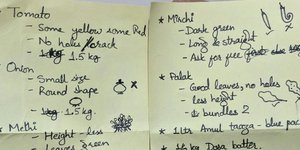 Tomato
- Some yellow some Red
- No holes/crack
- 1.5 kg
Onion
- Small size
- Round shape
- 1.5 kg
* Methi
- Height - less
- leaves green
* Mirchi
- Dark green
- Long & straight
- Ask for free
* Palak
- Good leaves, no holes
- less height
- bundles 2
* 1 ltr Amul taaza - blue pac
Kg Dosa batter.